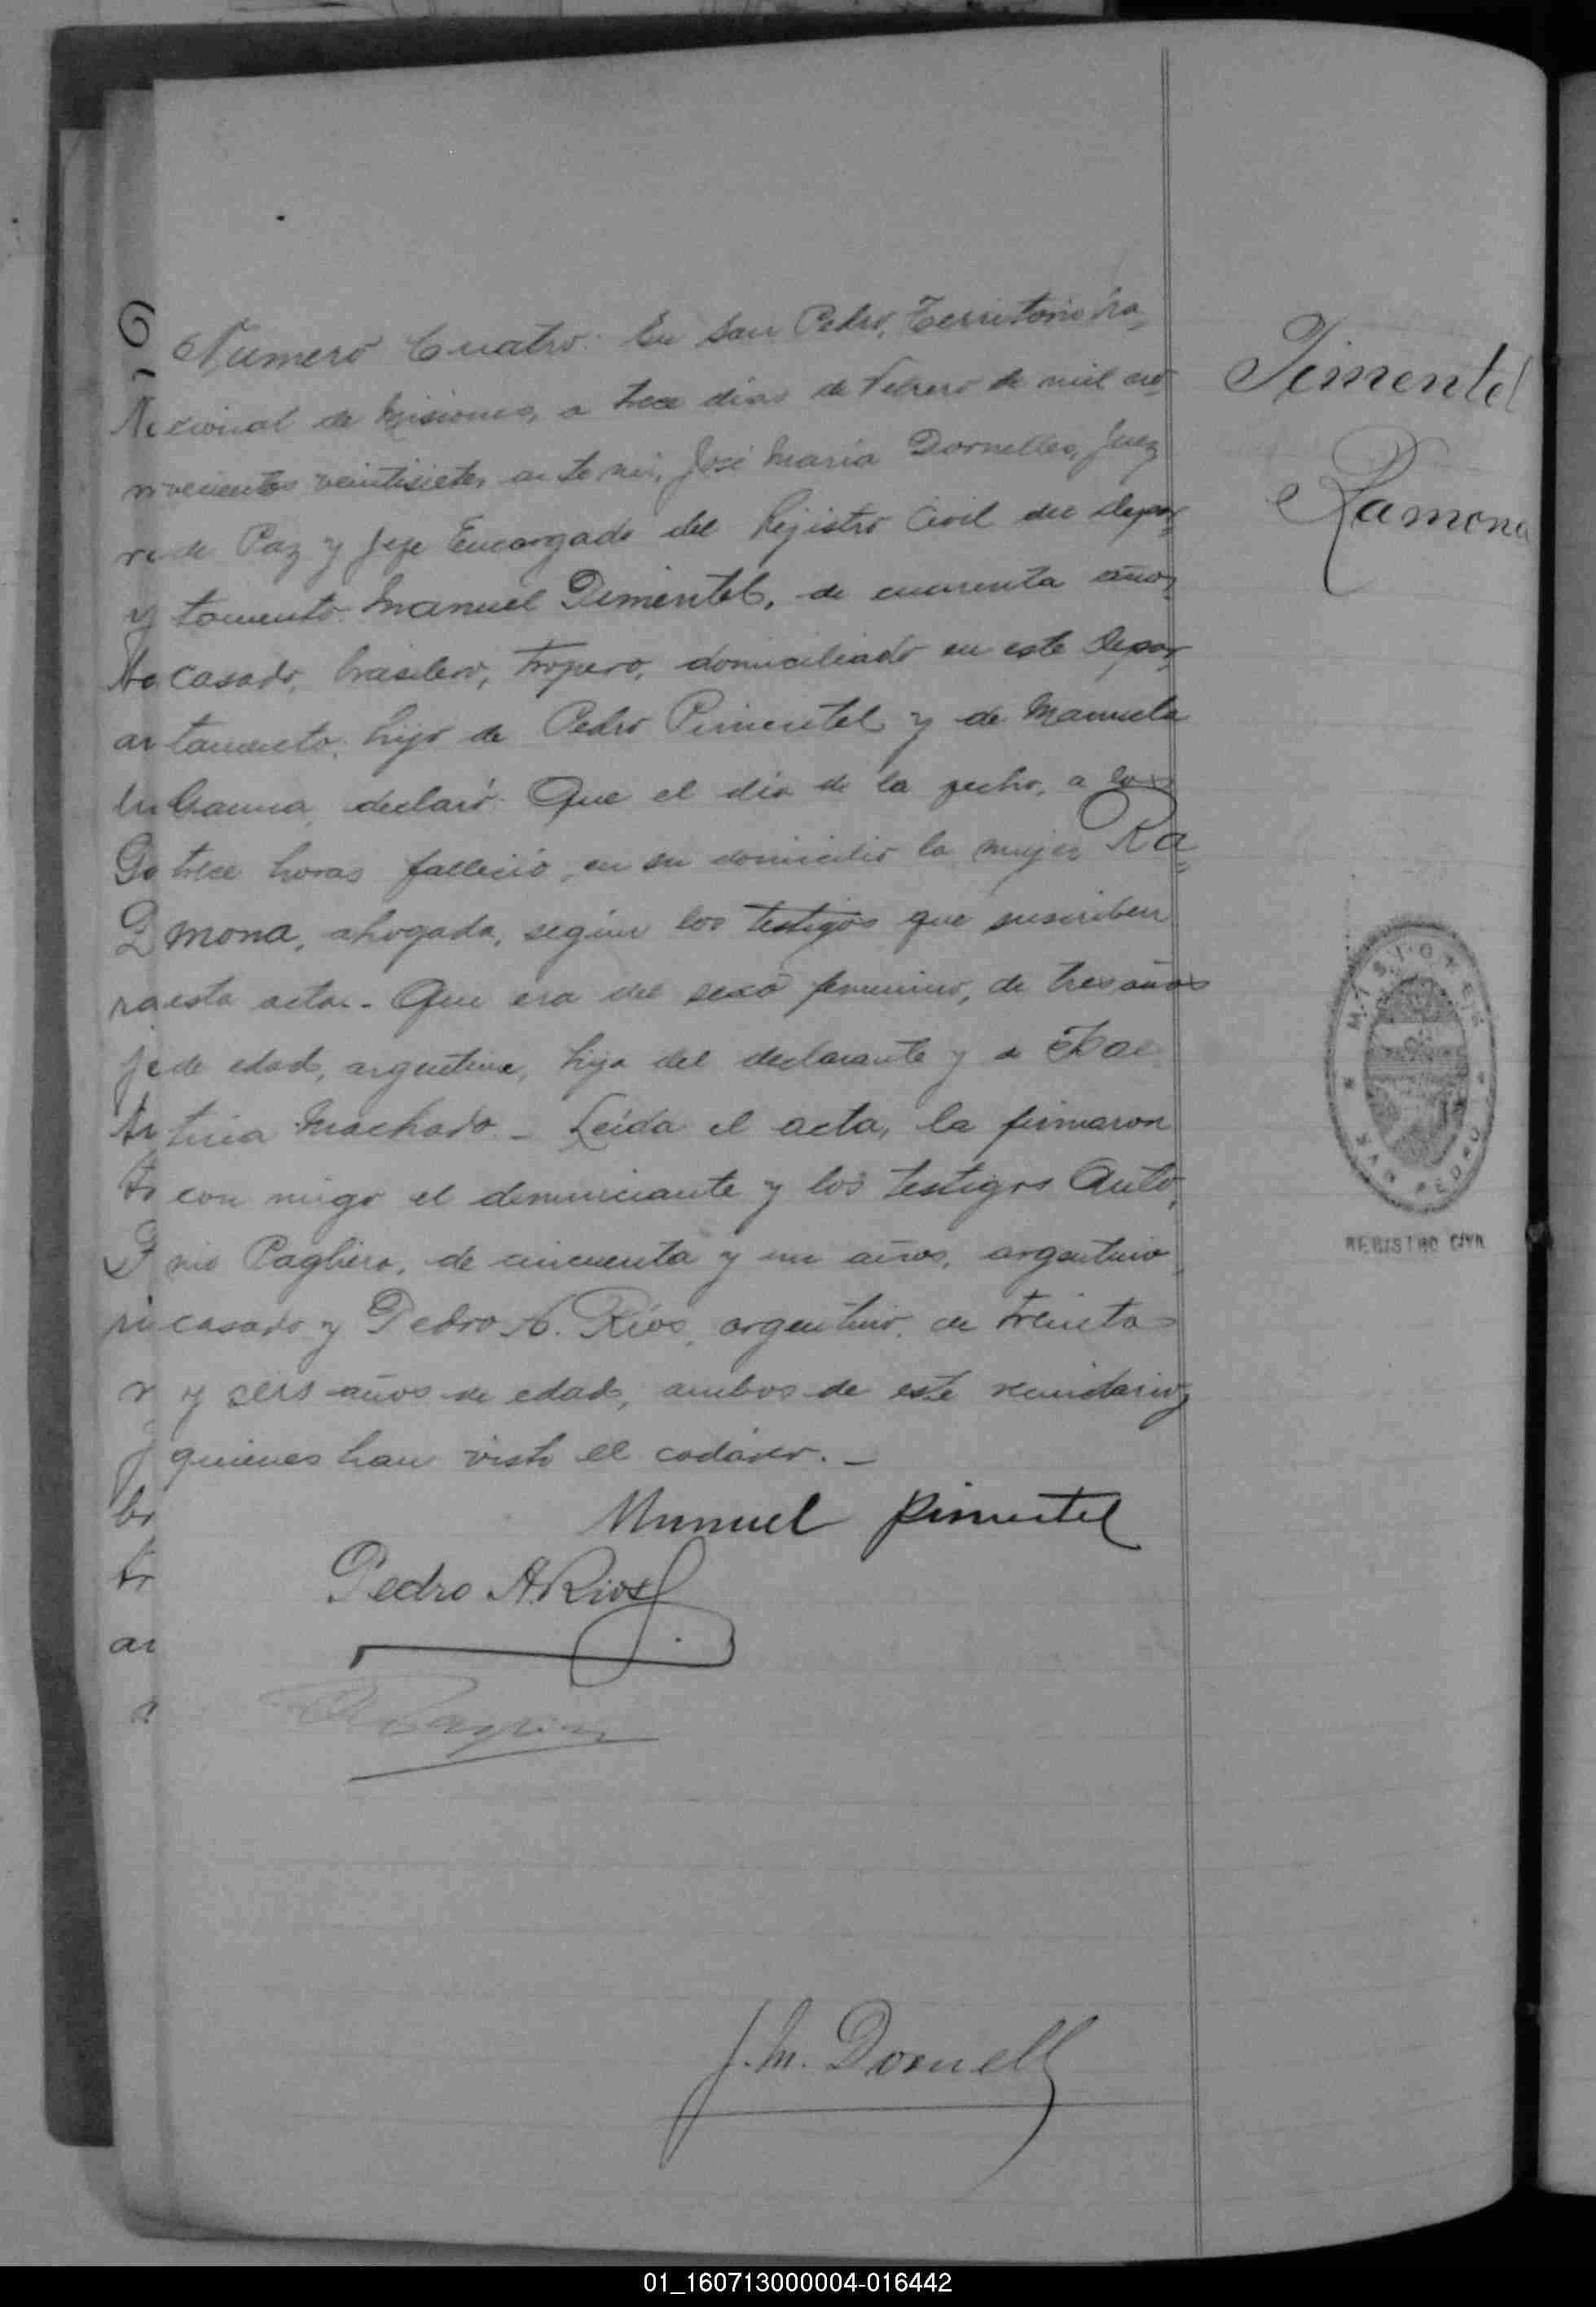 Pimentel
Ramona
Número Cuatro. En San Pedro, Territorio Na-
cional de Misiones, a trece dias de Febrero de mil no-
vecientos veintisiete, ante mi, José María Dornelles, Juez
de Paz y Jefe Encargado del Rejistro Civil del depar-
tamento. Manuel Pimentel, de cuarenta años,
casado, brasilero, tropero, domiciliado en este Depar-
tamento, hijo de Pedro Pimentel y de Manuela
declaró: Que el dia de la fecha, a las
trece horas falleció, en su domicilio la mujer Ra-
mona, ahogada, según los testigos que suscriben
esta acta.- Que era del sexo femenino, de tres años
de edad, argentina, hija del declarante y de
Machado.- Leída el acta, la firmaron
con migo el denunciante y los testigos Anto-
nio Pagliero, de cincuenta y un años, argentino
casado y Pedro A. Ríos, argentino, de treinta
y seis años de edad, ambos de este vecindario,
quienes han visto el cadáver.-
Manuel Pimentel
Pedro A. Rios
J. M. Dornell
MISIONES
SAN PEDRO
REGISTRO CIVIL
01_160713000004-016442